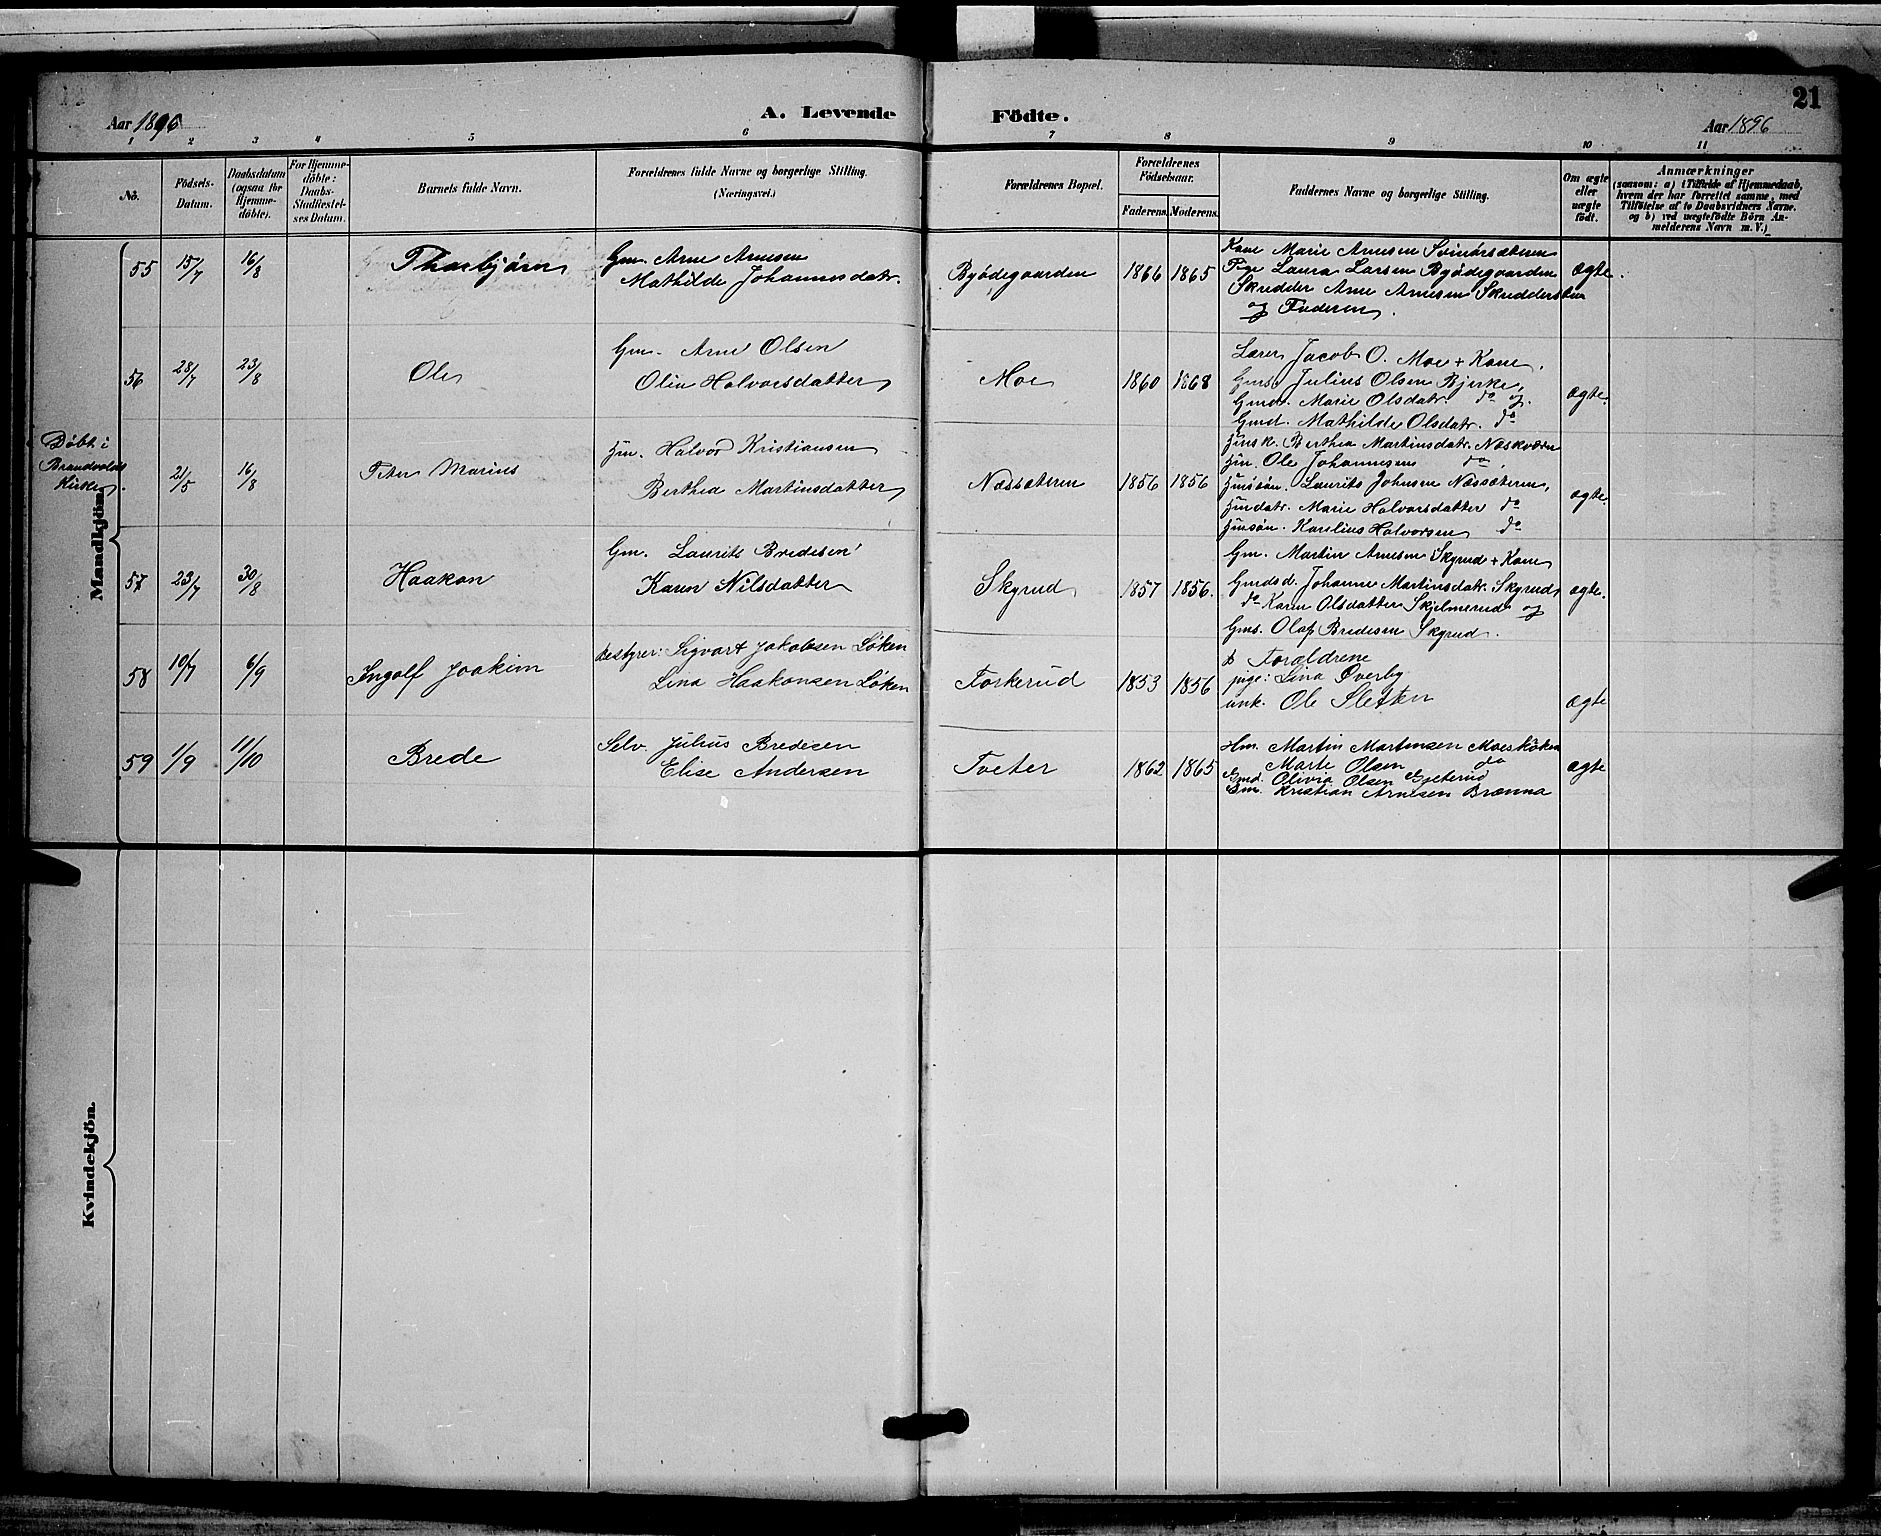 21
Aar 1896 A. Levende Födte. Aar 1896
1 2 3 4 5 6 7 8 9 10 11
No.
Födsels-Datum.
Daabsdatum (ogsaa for Hjemmedöbte).
For Hjemmedöbte: Daabs-Stadfæstelses Datum.
Barnets fulde Navn.
Forældrenes fulde Navne og borgerlige Stilling.
(Næringsvei.)
Forældrenes Bopæl.
Forældrenes Födselsaar.
Faderens. Moderens.
Faddernes Navne og borgerlige Stilling.
Om ægte eller uægte födt.
Anmærkninger
(saasom: a) i Tilfælde af Hjemmedaab,
hvem der har forrettet samme, med
Tilföielse af to Daabsvidners Navne.
og b) ved uægtefödte Börn An-
melderens Navn m. V.)
Mandkjön.
55 15/7 16/8 Thorbjørn Gm. Arne Arnesen
Mathilde Johannesdatr. Byødegaarden 1866 1865 ægte.
Kone Marie Arnesen
Pige Laura Larsen Byødegaarden
Skrædder Arne Arnesen
og Faderen.
56 28/7 23/8 Ole Gm. Arne Olsen
Olia Halvorsdatter Moe 1860 1868 ægte.
Lærer Jacob O. Moe + Kone,
Gms. Julius Olsen Bjerke,
Gmd. Marie Olsdatr. do og
Gmd. Mathilde Olsdatr. do
Döbt i
Brandvolds
Kirke.
21/5 16/8 Peter Marius Hm. Halvor Kristiansen
Berthea Martinsdatter Næssæteren 1856 1856 ægte.
Hmsk. Berthea Martinsdatr.
Hm. Ole Johannesen do,
Hmsøn. Laurits Johnsen Næssæteren,
Hmdatr. Marie Halvorsdatter do
Hmsøn. Karelius Halvorsen do
57 23/7 30/8 Haakon Gm. Laurits Bredesen
Karen Nilsdatter Skyrud 1857 1856. ægte.
Gm. Martin Arnesen Skyrud + Kone
Gmdsd. Johanne Martinsdatr. Skyrud,
do Karen Olsdatter Skjelmerud og
Gms. Olaf Bredesen Skyrud.
58 10/7 6/9 Ingolf Joakim Bestyrer: Sigvart Jakobsen Løken
Lina Haakonsen Løken Torkerud 1853 1856 ægte
Forældrene
pige: Lina Øverby
unk. Ole Sletten
59 1/9 11/10 Brede Selv. Julius Bredesen
Elise Andersen Tveter 1862 1865 ægte
Hm. Martin Martinsen
Marte Olsen do
Gmd. Olivia Olsen Gjeterud
Gm. Kristian Arnesen Brænna
Kvindekjön.